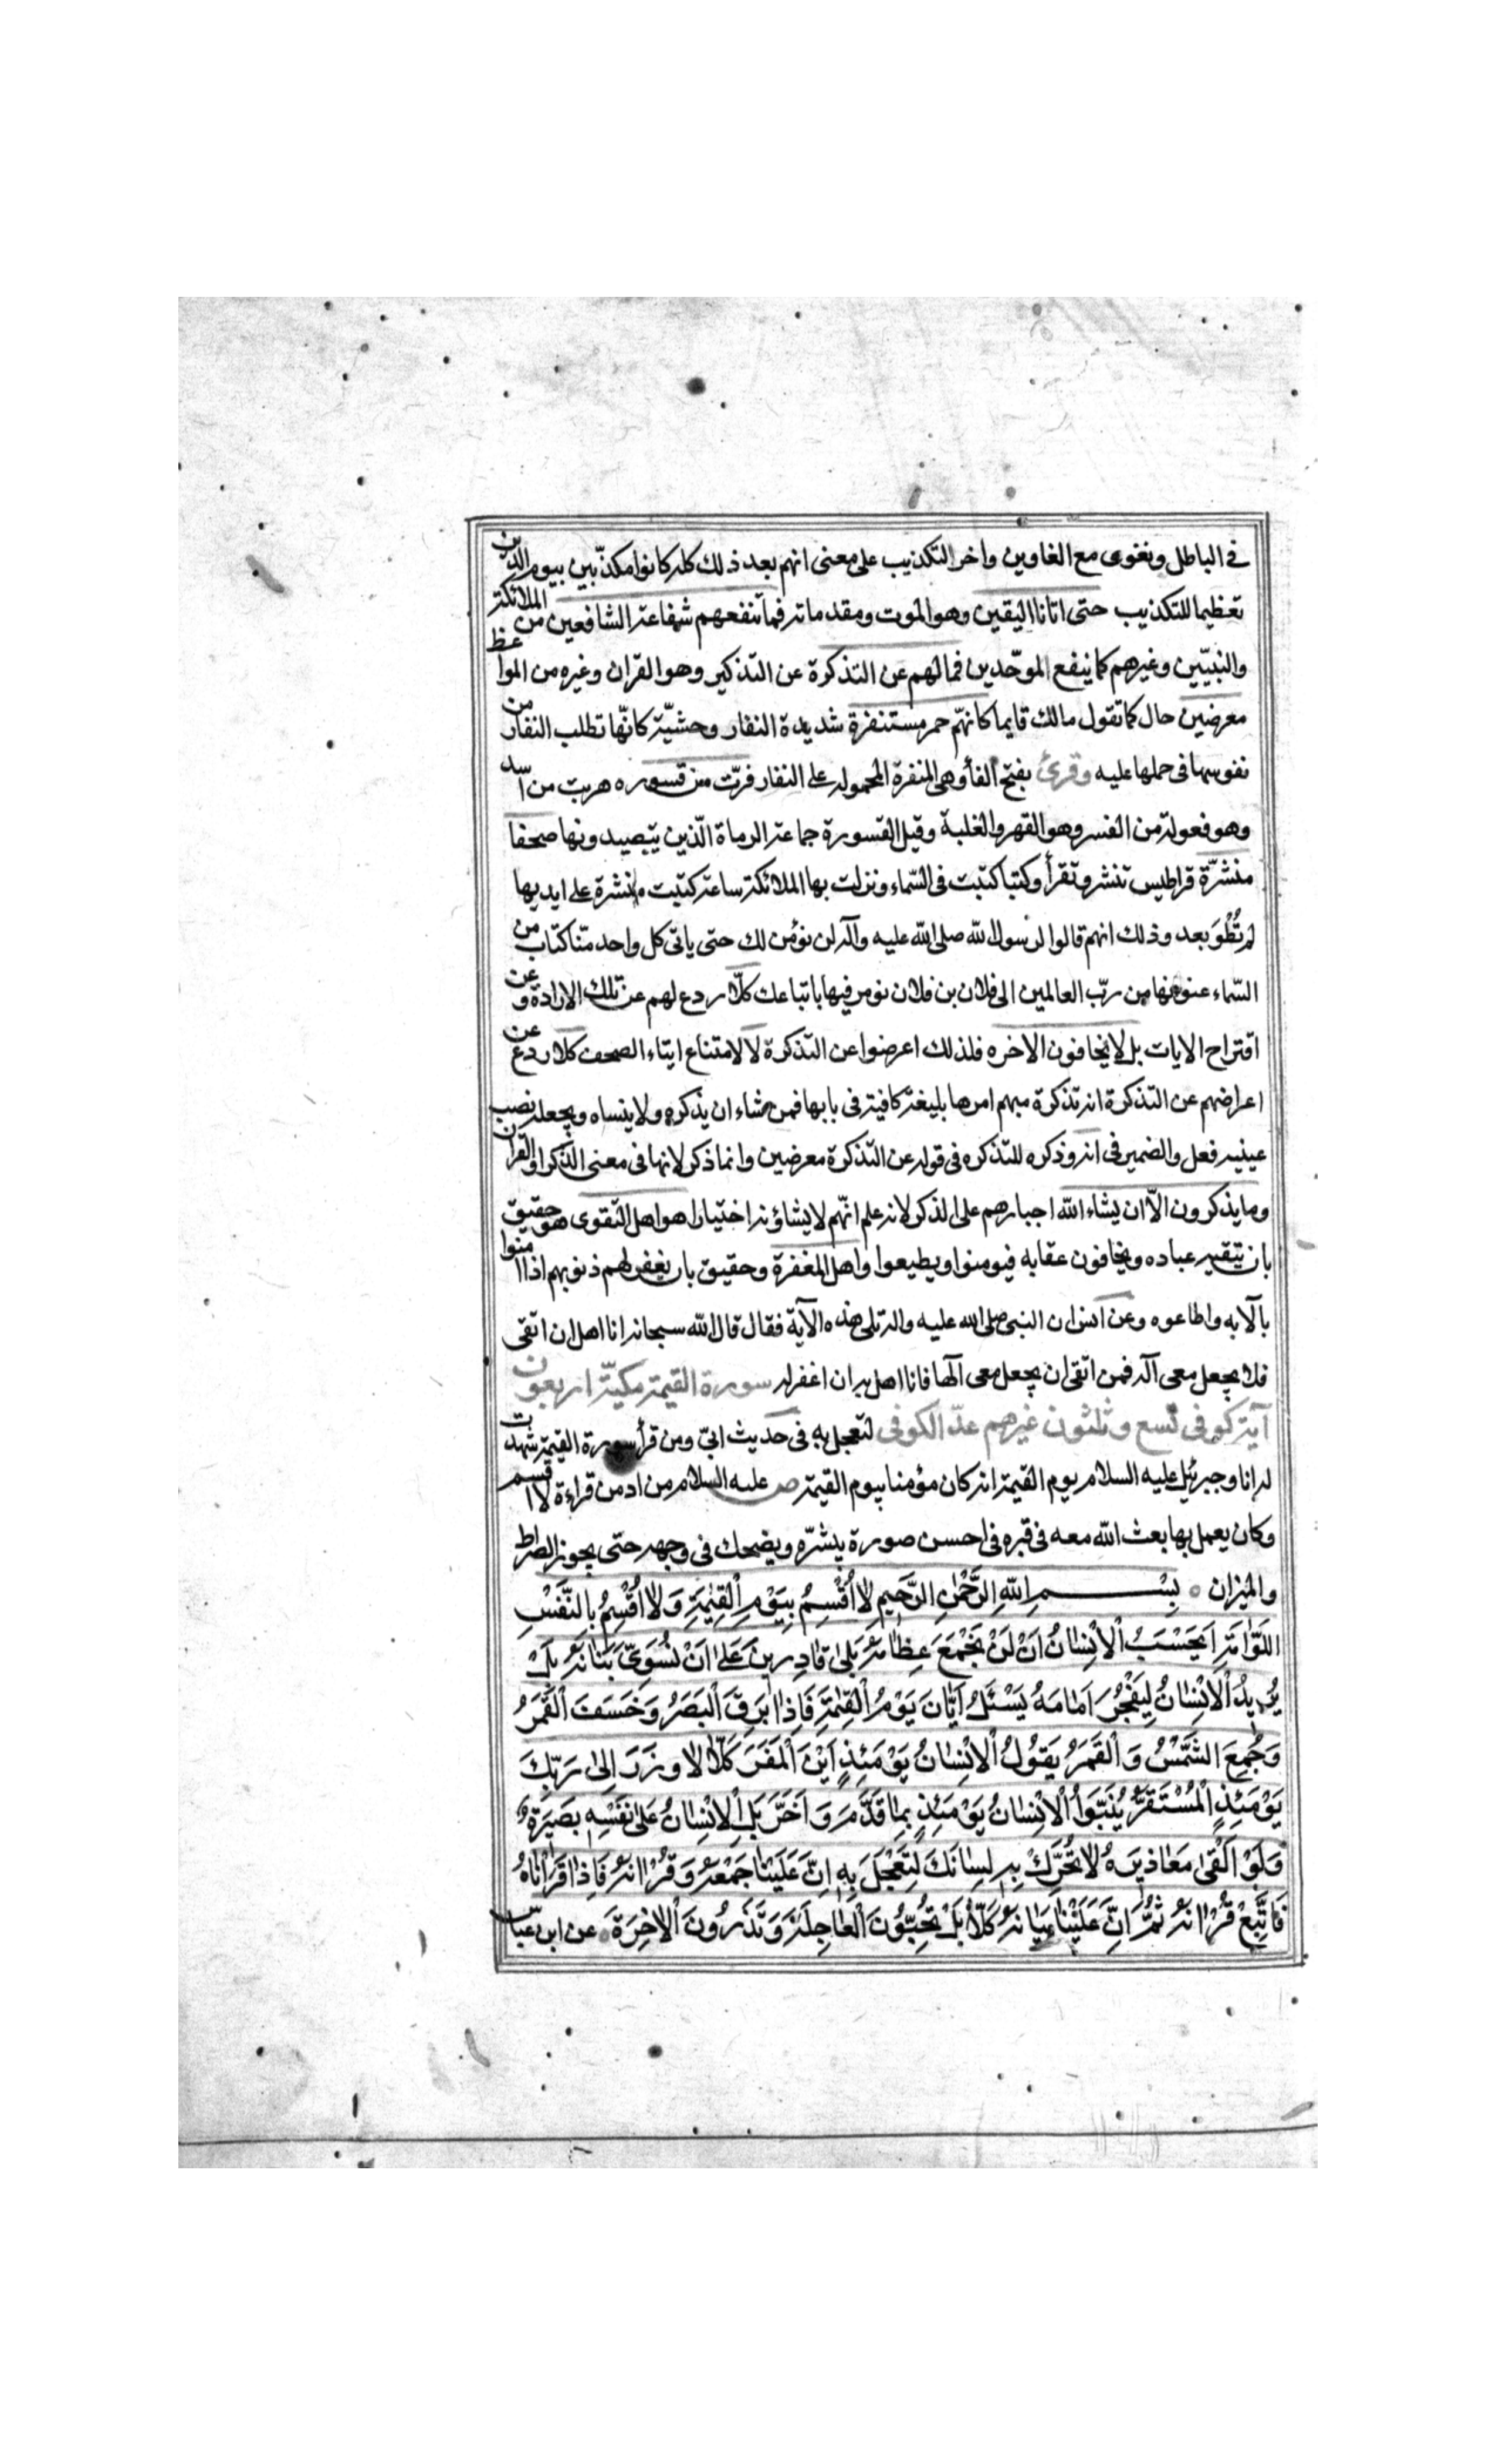 في الباطل ونغوى مع الغاوين واخر التكذيب على معنى انهم بعد ذلك كله كانوا مكذّبين بيوم الدّين
تعظيما للتكذيب حتى اتانا اليقين وهو الموت ومقدماته فما تنفعهم شفاعة الشافعين من الملائكة
والنبيّين وغيرهم كما ينفع الموحّدين فما لهم عن التذكرة عن التذكير وهو القران وغيره من المواعظ
معرضين حال كما تقول مالك قايما كانهّم حمر مستنفرة شديدة النفار وحشيّة كانّها تطلب النفار من
نفوسها فى حملها عليه وقرئ بفتح الفأ وهى المنفرة المحموله على النفار فرّت من قسوره هربت من اسد
وهو فعولة من القسر وهو القهر والغلبة وقيل القسورة جماعة الرماة الّذين يتصيدونها صحفا
منشرّة قراطيس تنشر وتقرأ وكتبا كتبت فى السّماء ونزلت بها الملائكة ساعة كتبت منشرة على ايديها
لم تُطْوَ بعد وذلك انهم قالوا لرسول الله صلى الله عليه وآله لن نؤمن لك حتى ياتى كل واحد منّا كتاب من
السّماء عنوانها من ربّ العالمين الى فلان بن فلان نومر فيها باتباعك كلّا ردع لهم عن تلك الارادة وعن
اقتراح الايات بل لا يخافون الاخره فلذلك اعرضوا عن التذكرة لا لامتناع ايتاء الصحف كلا ردع عن
اعراضهم عن التذكرة انه تذكرة مبهم امرها بليغة كافية فى بابها فمن شاء ان يذكره ولا ينساه ويجعله نصب
عينيه فعل والضمير فى انه وذكره للتذكره فى قوله عن التذكرة معرضين وانما ذكر لانها فى معنى الذكر او القران
وما يذكرون الّا ان يشاء الله اجبارهم على الذكر لانه علم انهّم لا يشاؤنه اختيارا هو اهل التقوى هو حقيق
بان يتقيه عباده ويخافون عقابه فيومنوا ويطيعوا واهل المغفرة وحقيق بان يغفر لهم ذنوبهم اذا امنوا
بالآبه واطاعوه وعن انس ان النبى صلى الله عليه واله تلى هذه الآية فقال قال الله سبحانه انا اهل ان اتقى
فلا يجعل معى آله فمن اتقى ان يجعل معى آلها فانا اهل به ان اغفر له سورة القيمة مكيّة اربعون
آية كوفى تسع وثلثون غيرهم عدّ الكوفى لتعجل به فى حديث ابىّ ومن قرأ سورة القيمة شهدت
له انا وجبرئيل عليه السلام يوم القيمة انه كان مؤمنا بيوم القيمة ص عليه السلام من ادمن قراءة لا اقسم
وكان يعمل بها بعث الله معه فى قبره فى احسن صورة يبشّره ويضحك فى وجهه حتى يجوز الصراط
والميزان بِسْمِ اللهِ الرَّحْمٰنِ الرَّحَيمِ لا اُقْسِمُ بِيَوْمِ الْقِيٰمَةِ وَلا اُقْسِمُ بِالنَّفْسِ
اللَوّامَةِ اَيَحْسَبُ الْاِنْسانُ اَنْ لَنْ نَجْمَعَ عِظامَهُ بَلى قادِرينَ عَلى اَنْ نُسَوِّىَ بَنانَهُ بَلْ
يُريدُ الْاِنْسانُ لِيَفْجُرَ اَمامَهُ يَسْئَلُ اَيّانَ يَوْمُ الْقِيٰمَةِ فَاِذا بَرِقَ الْبَصَرُ وَخَسَفَ الْقَمَرُ
وَجُمِعَ الشَّمْسُ وَالْقَمَرُ يَقوُلُ الْاِنْسانُ يَوْمَئِذٍ اَيْنَ الْمَفَرّ كَلّا لا وَزَرَ اِلى رَبِّكَ
يَوْمَئِذٍ الْمُسْتَقَرُّ يُنَبَّوُا الْاِنْسانُ يَوْمَئِذٍ بِما قَدَّمَ وَاَخَّرَ بَلِ الْاِنْسانُ عَلى نَفْسِهِ بَصيَرَةٌ
وَلَوْ اَلْقى مَعاذيرَهُ لا تُحَرِّكْ بِهِ لِسانَكَ لِتَعْجَلَ بِهِ اِنَّ عَلَيْنا جَمْعَهُ وَقُرْانَهُ فَاِذا قَرَأْناهُ
فَاتَّبِعْ قُرْانَهُ ثُمَّ اِنَّ عَلَيْنا بَيانَهُ كَلّا بَلْ تُحِبّوُنَ الْعاجِلَةَ وَتَذَرُونَ الْاخِرَةَ عن ابن عبّاس